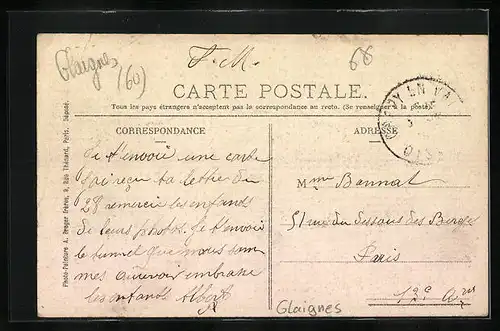 Glaignes
(60)
F. M.
68
CARTE POSTALE.
Tous les pays étrangers n'acceptent pas la correspondance au recto. (Se renseigner à la poste).
CORRESPONDANCE
ADRESSE
Photo-Peinture A. Breger frères, 9, Rue Thénard, Paris. Déposé.
CRÉPY EN VAL
OISE
Je t'envoie une carte
j'ai reçu ta lettre du
28 remercie les enfants
de leurs photos. Je t'envoie
le tunnel que nous som
mes au revoir embrasse
les enfants Albert
Mme Bannat
51 rue du Dessous des Berges
Paris
Glaignes